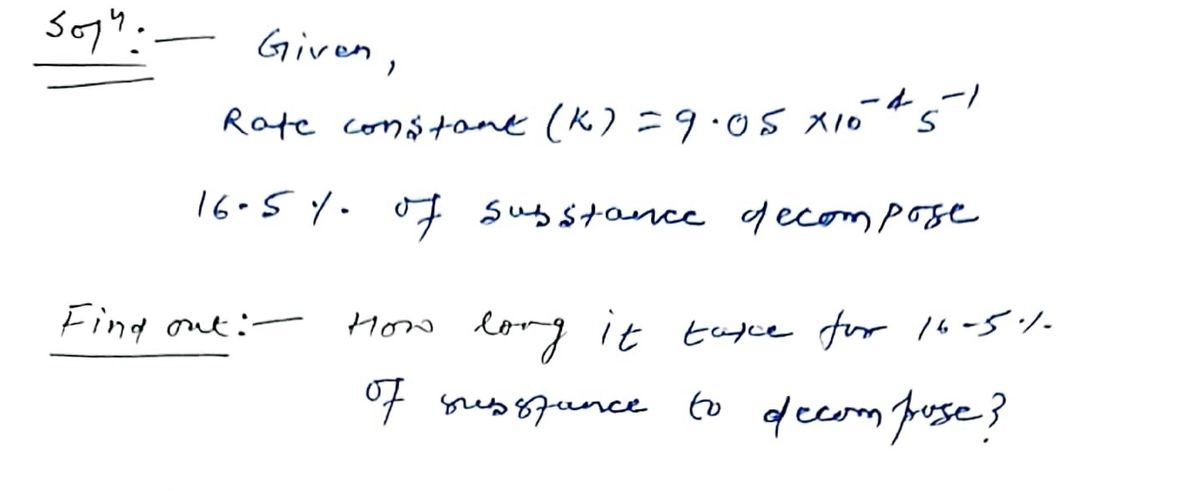 Solⁿ:— Given,
Rate constant (K) = 9.05 ×10⁻⁴ s⁻¹
16.5 %. of substance decompose
Find out:— How long it take for 16.5 %.
of substance to decompose?